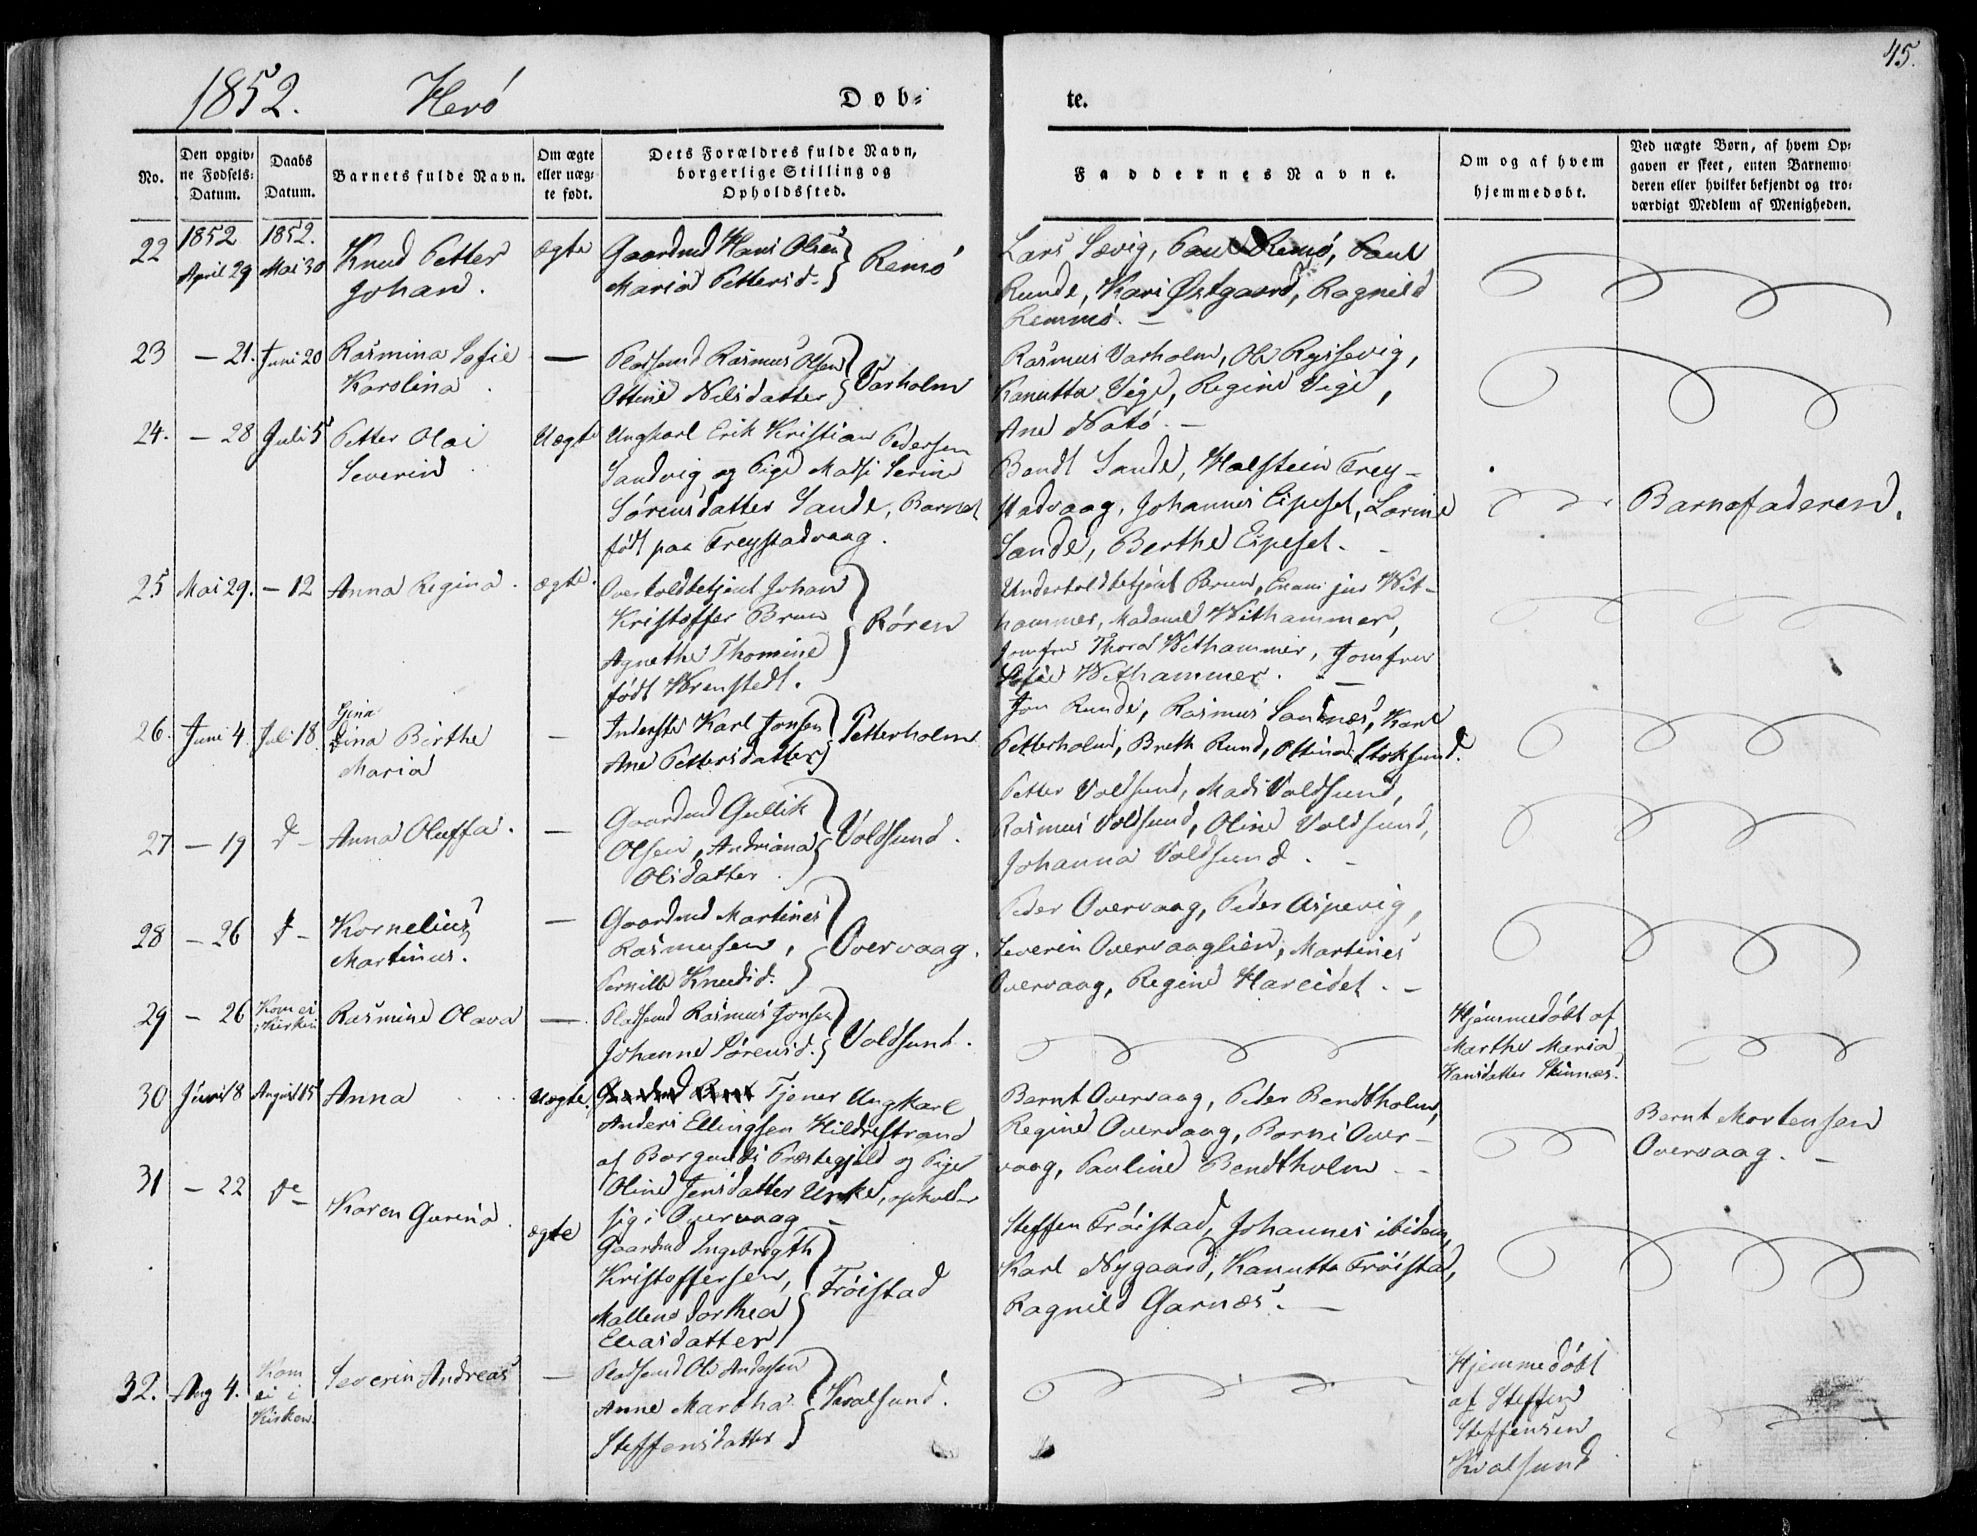 45.
1852. Herö Døb-
te.
No.
Den opgiv-
ne Fødsels-
Datum.
Daabs
Datum.
Barnets fulde Navn.
Om ægte
eller uæg-
te født.
Dets Forældres fulde Navn,
borgerlige Stilling og
Opholdssted.
Faddernes Navne.
Om og af hvem
hjemmedøbt.
Ved uægte Børn, af hvem Op-
gaven er skeet, enten Barnemo-
deren eller hvilket bekjendt og tro-
værdigt Medlem af Menigheden.
22
1852
April 29
1852.
Mai 30
Knud Petter
Johan.
ægte
Gaardmd Hans Olsen
Maria Pettersd.
Remö
Lars Sævig, Paul Remö, Paul
Runde, Kari Østgaard, Ragnild
Remmö. -
23
- 21.
Juni 20
Rasmina Sofie
Karolina.
-
Pladsmd Rasmus Olsen
Ottine Nilsdatter
Varholm
Rasmus Varholm, Ole Rysjevig,
Kanutta Vige, Regine Vige,
Ane Notö. -
24.
- 28
Juli 5
Petter Olai
Severin
Uægte
Ungkarl Erik Kristian Pedersen
Sandvig og Pige Madsi Serine
Sörensdatter Sande, Barnet
födt paa Freystadvaag.
Bendt Sande, Holstein Frey-
stadvaag, Johannes Eipeset, Lovise
Sande, Berthe Eipeset. -
Barnefaderen.
25
Mai 29.
- 12
Anna Regina.
ægte.
Overtoldbetjent Johan
Kristoffer Brun
Agnethe Thomine
födt Wrenstedt.
Rören
Undertoldbetjent Brun, Exam jur Wit-
hammer, Madame Withammer,
Jomfru Thora Withammer, Jomfru
Sofie Withammer. -
26.
Juni 4.
Juli 18.
Gina
Lina Birthe
Maria
-
Inderste Karl Jonsen
Ane Pettersdatter
Petterholm
Jon Runde, Rasmus Sandnæs, Karl
Petterholm, Breth Rund, Ottina Stoksund.
27
- 19
d -
Anna Oluffa.
-
Gaardmd Gullik
Olsen, Andriana
Olsdatter.
Voldsund.
Petter Voldsund, Mads Voldsund,
Rasmus Voldsund, Oline Voldsund,
Johanna Voldsund. -
28
- 26
d -
Kornelius
Martinus.
-
Gaardmd Martines
Rasmusen,
Pernille Knudsd.
Overvaag.
Peder Overvaag, Peder Aspevig,
Severin Overvaaglien, Martines
Overvaag, Regine Hareidet. -
29
- 26
Kom ei
i Kirken
Rasmine Olava
-
Pladsmd Rasmus Jonsen
Johanne Sörensd.
Voldsund.
Hjemmedöbt af
Marthe Maria
Hansdatter Skinnæs.
30
Juni 18
August 15
Anna
Uægte.
Tjener Ungkarl
Anders Ellingsen Hildrestrand
af Borgunds Præstegjeld og Pige
Oline Jensdatter Urke, opholder
sig i Overvaag -
Bernt Overvaag, Peder Bendtholm,
Regine Overvaag, Borni Over-
vaag, Pauline Bendtholm - -
Bernt Mortensen
Overvaag. -
31
- 22
de
Karen Gurina.
ægte
Gaardmd Ingebrigth
Kristoffersen,
Mallene Dorthea
Eliasdatter
Fröistad
Steffen Fröistad, Johannes ibidem,
Karl Nygaard, Kanutta Fröistad,
Ragnild Garnæs. -
32.
Aug 4.
Kom
ei i
Kirken
Severin Andreas
-
Pladsmd Ole Andersen
Anne Martha
Steffensdatter
Kvalsund.
Hjemmedöbt
af Steffen
Steffensen
Kvalsund